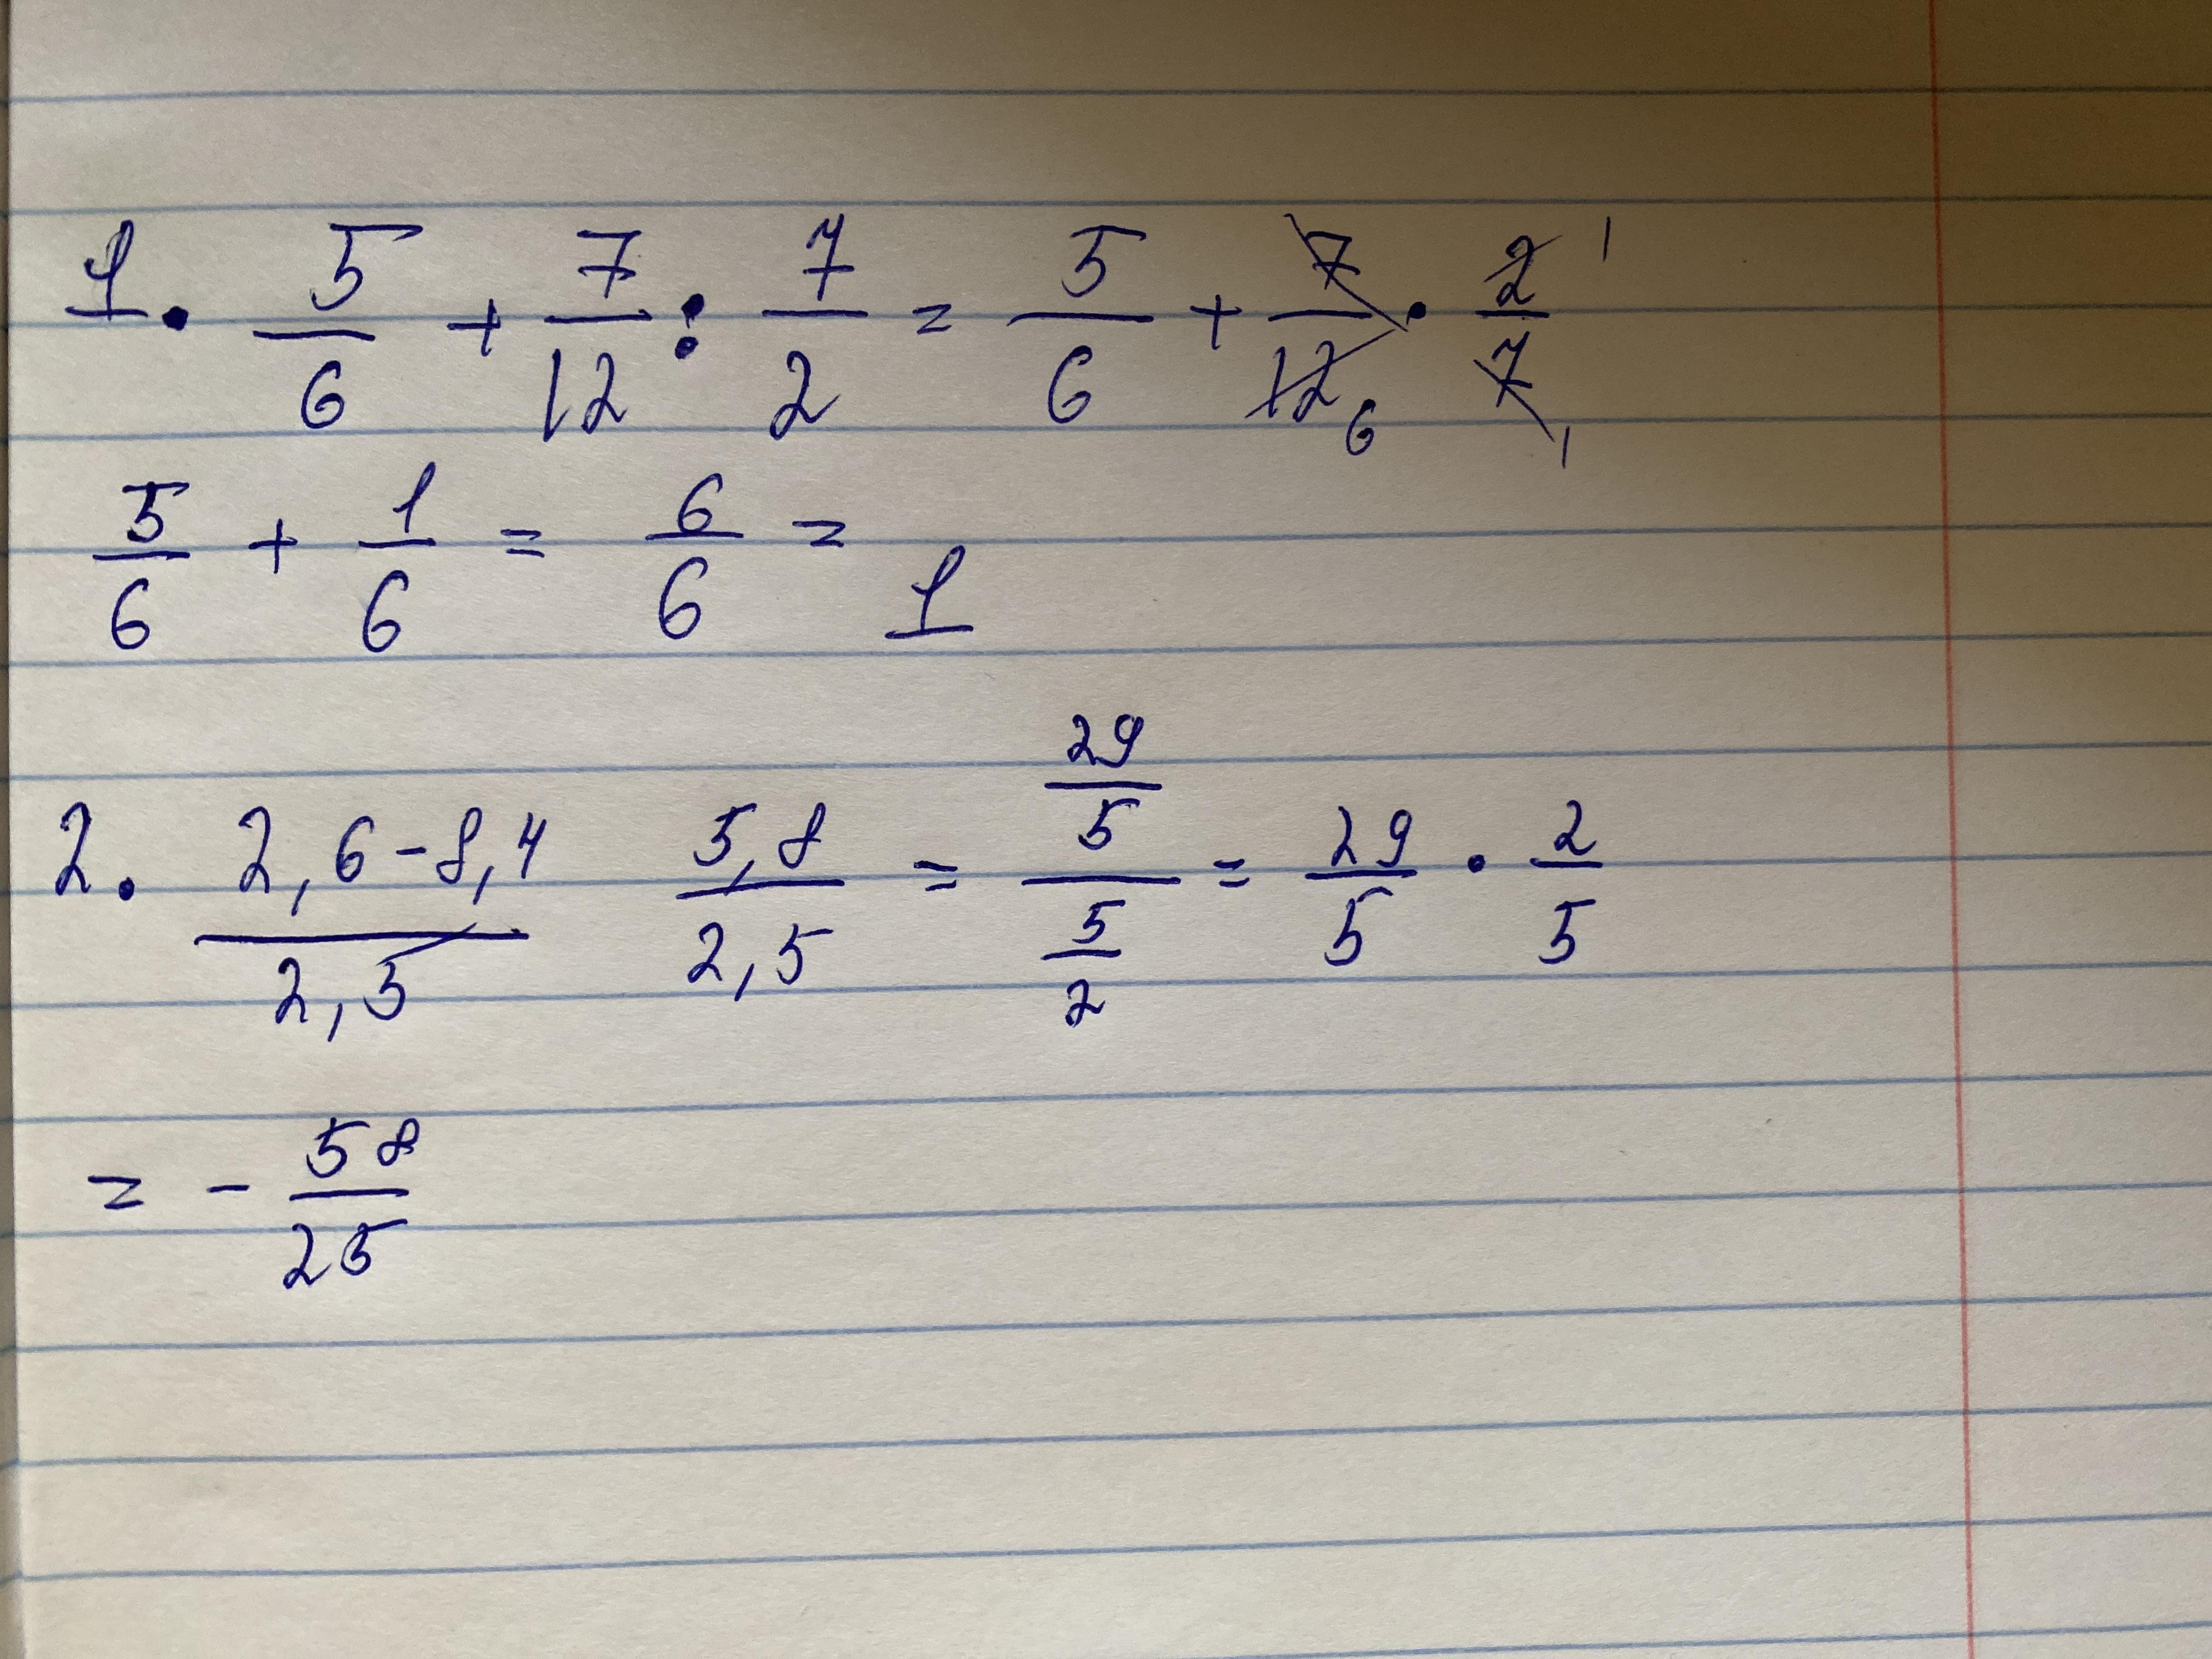 1. 5/6 + 7/12 : 7/2 = 5/6 + 7/12 6 · 2/7 1 1
5/6 + 1/6 = 6/6 = 1
2. 2,6-8,4/2,5 5,8/2,5 = 29/5/5/2 = 29/5 · 2/5
= - 58/25